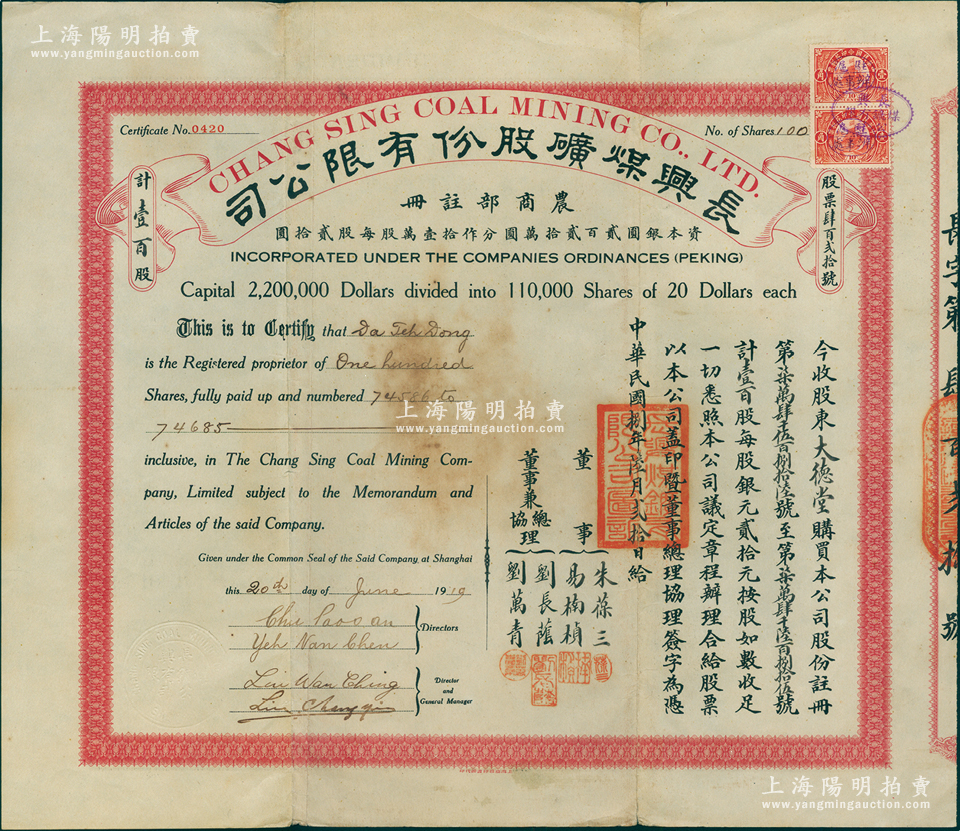 上海陽明拍賣
www.yangmingauction.com
上海陽明拍賣
www.yangmingauction.com
Certificate No. 0420
No. of Shares 100
CHANG SING COAL MINING CO., LTD.
司公限有份股礦煤興長
冊註部商農
圓拾貳股每股萬壹拾作分圓萬拾貳百貳圓銀本資
計壹百股
股票肆百弍拾號
INCORPORATED UNDER THE COMPANIES ORDINANCES (PEKING)
Capital 2,200,000 Dollars divided into 110,000 Shares of 20 Dollars each
This is to Certify that Da Teh Dong
is the Registered proprietor of One hundred
Shares, fully paid up and numbered 74586 to
74685
inclusive, in The Chang Sing Coal Mining Com-
pany, Limited subject to the Memorandum and
Articles of the said Company.
Given under the Common Seal of the Said Company at Shanghai
this 20th day of June 1919
Chu Paos an
Yeh Nan Chen
Directors
Lou Wan Ching
Liu Chang yin
Director
and
General Manager
今收股東大德堂購買本公司股份註冊
第柒萬肆千伍百捌拾陸號至第柒萬肆千陸百捌拾伍號
計壹百股每股銀元貳拾元按股如數收足
一切悉照本公司議定章程辦理合給股票
以本公司蓋印暨董事總理協理簽字為憑
中華民國捌年陸月弍拾日給
董事
朱葆三
易楠楨
董事兼總協理
劉長蔭
劉萬青
上海陽明拍賣
www.yangmingauction.com
上海陽明拍賣
www.yangmingauction.com